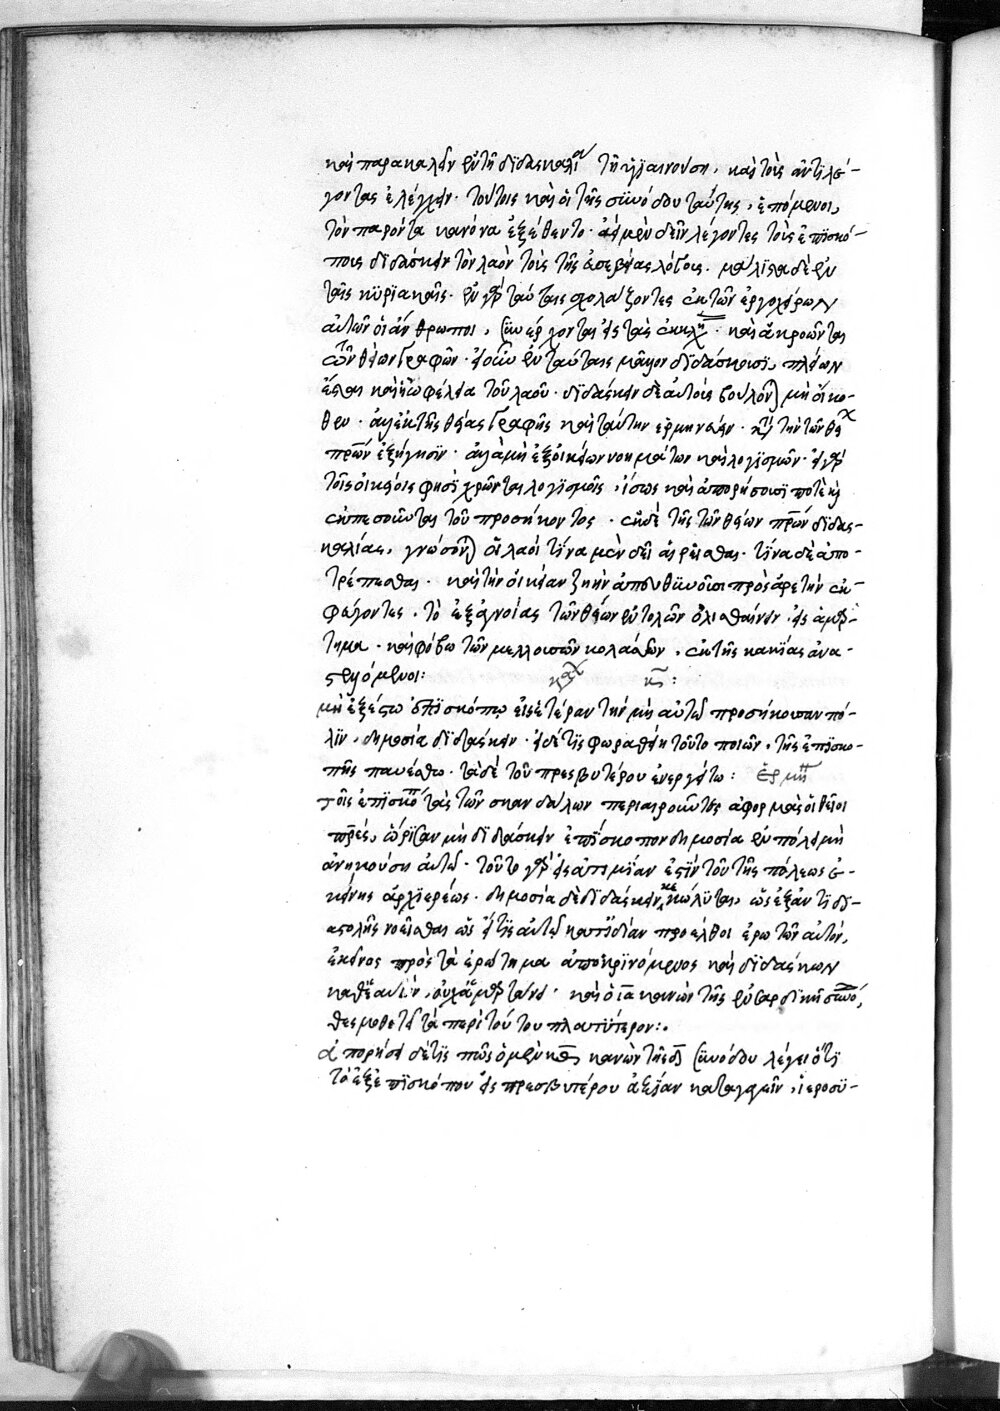 καὶ παρακαλεῖν ἐν τῇ διδασκαλίᾳ τῇ ὑγιαινούσῃ, καὶ τοὺς ἀντιλέ-
γοντας ἐλέγχειν· τούτοις καὶ οἱ τῆς συνόδου ταύτης, ἑπόμενοι,
τὸν παρόντα κανόνα ἐξέθεντο· ἀεὶ μὲν δεῖν λέγοντες τοὺς ἐπισκό-
πους διδάσκειν τὸν λαὸν τοὺς τῆς εὐσεβείας λόγους. μάλιστα δὲ ἐν
ταῖς κυριακαῖς· ἐν γὰρ ταύταις σχολάζοντες ἐκ τῶν ἐργοχείρων
αὐτῶν οἱ ἄνθρωποι, συνέρχονται εἰς τὰς ἐκκλη · καὶ ἀκροῶνται
τῶν θείων γραφῶν· εἰ οὖν ἐν ταύταις μᾶλλον διδάσκουσι, πλείων
ἔσται καὶ ἡ ὠφέλεια τοῦ λαοῦ· διδάσκειν δὲ αὐτοὺς βούλον) μὴ οἴκο-
θεν· ἀλλ' ἐκ τῆς θείας γραφῆς καὶ ταύτην ἑρμηνεύειν· κατὰ τὴν τῶν θείων
πρῶν ἐξήγησιν· ἀλλὰ μὴ ἐξ οἰκείων νοημάτων καὶ λογισμῶν· εἰ γὰρ
τοῖς οἰκείοις φησὶ χρῶνται λογισμοῖς, ἴσως καὶ ἀπορήσουσί ποτε ἢ
ἐκπεσοῦνται τοῦ προσήκοντος· ἐκ δὲ τῆς τῶν θείων πρῶν διδασ-
καλίας, γνώσον) οἱ λαοὶ τίνα μὲν δεῖ αἱρεῖσθαι· τίνα δὲ ἀπο-
τρέπεσθαι· καὶ τὴν οἰκείαν ζωὴν ἀπευθύνουσι πρὸς ἀρετὴν ἐκ-
φεύγοντες, τὸ ἐξ ἀγνοίας τῶν θείων ἐντολῶν ὀλισθαίνειν εἰς ἁμάρ-
τημα· καὶ φόβῳ τῶν μελλουσῶν κολάσεων, ἐκ τῆς κακίας ἀνα-
στελλόμενοι:
κ :
μὴ ἐξέστω ἐπισκόπῳ εἰς ἑτέραν τὴν μὴ αὐτῷ προσήκουσαν πό-
λιν, δημοσίᾳ διδάσκειν· εἰ δέ τις φωραθείη τοῦτο ποιῶν, τῆς ἐπισκο-
πῆς παυέσθω· τὰ δὲ τοῦ πρεσβυτέρου ἐνεργείτω: Ἑρμη
τοῖς ἐπισκόπ τὰς τῶν σκανδάλων περιαιροῦντες ἀφορμὰς οἱ θεῖοι
πρες, ὥρισαν μὴ διδάσκειν ἐπίσκοπον δημοσίᾳ ἐν πόλει μὴ
ἀνηκούσῃ αὐτῷ· τοῦτο γὰρ εἰς ἀτιμίαν ἐστὶν τοῦ τῆς πόλεως ἐ-
κείνης ἀρχιερέως· δημοσίᾳ δὲ διδάσκειν κεκώλυται, ὡς ἐξ ἀντιδι-
αστολῆς νοεῖσθαι ὡς εἴ τις αὐτῷ κατ' ἰδίαν προσέλθοι ἐρωτῶν αὐτόν,
ἐκεῖνος πρὸς τὰ ἐρώτημα ἀποκρινόμενος καὶ διδάσκων
καθ' ἑαυτόν, οὐχ ἁμαρτάνει· καὶ ὁ ια κανὼν τῆς ἐν σαρδικῇ συνό,
θεσμοθετεῖ τὰ περὶ τούτου πλατύτερον:·
ἀπορήσει δέ τις πῶς ὁ μὲν κθ κανὼν τῆς δ συνόδου λέγει ὅτι
τὸ ἐξ ἐπισκόπου εἰς πρεσβυτέρου ἀξίαν κατάγειν, ἱεροσυ-